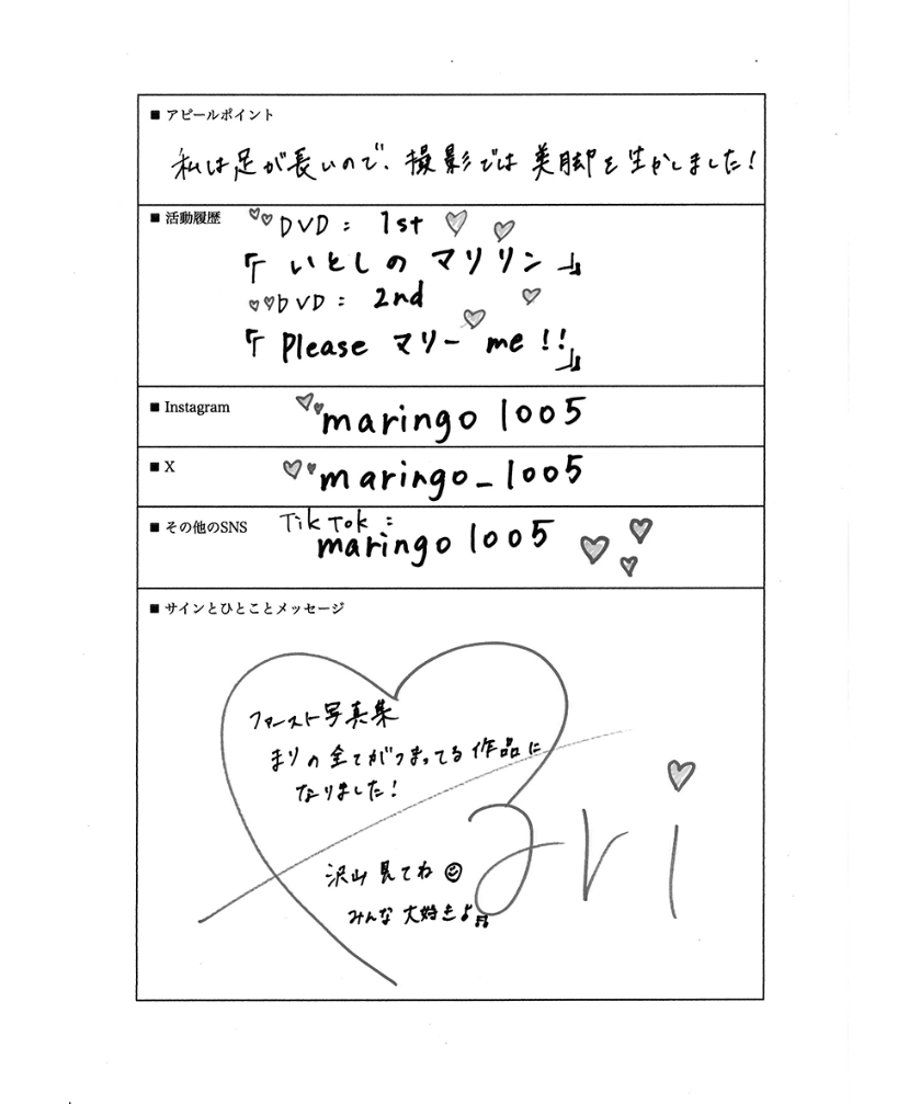 ■ アピールポイント
私は足が長いので、撮影では美脚を生かしました!
■ 活動履歴
DVD: 1st
『いとしの マリリン』
DVD: 2nd
『Please マリー me!!』
■ Instagram
maringo1005
■ X
maringo_1005
■ その他のSNS
TikTok:
maringo1005
■ サインとひとことメッセージ
ファースト写真集
まりの全てがつまってる作品に
なりました!
沢山見てね
みんな大好きよ♬
ari